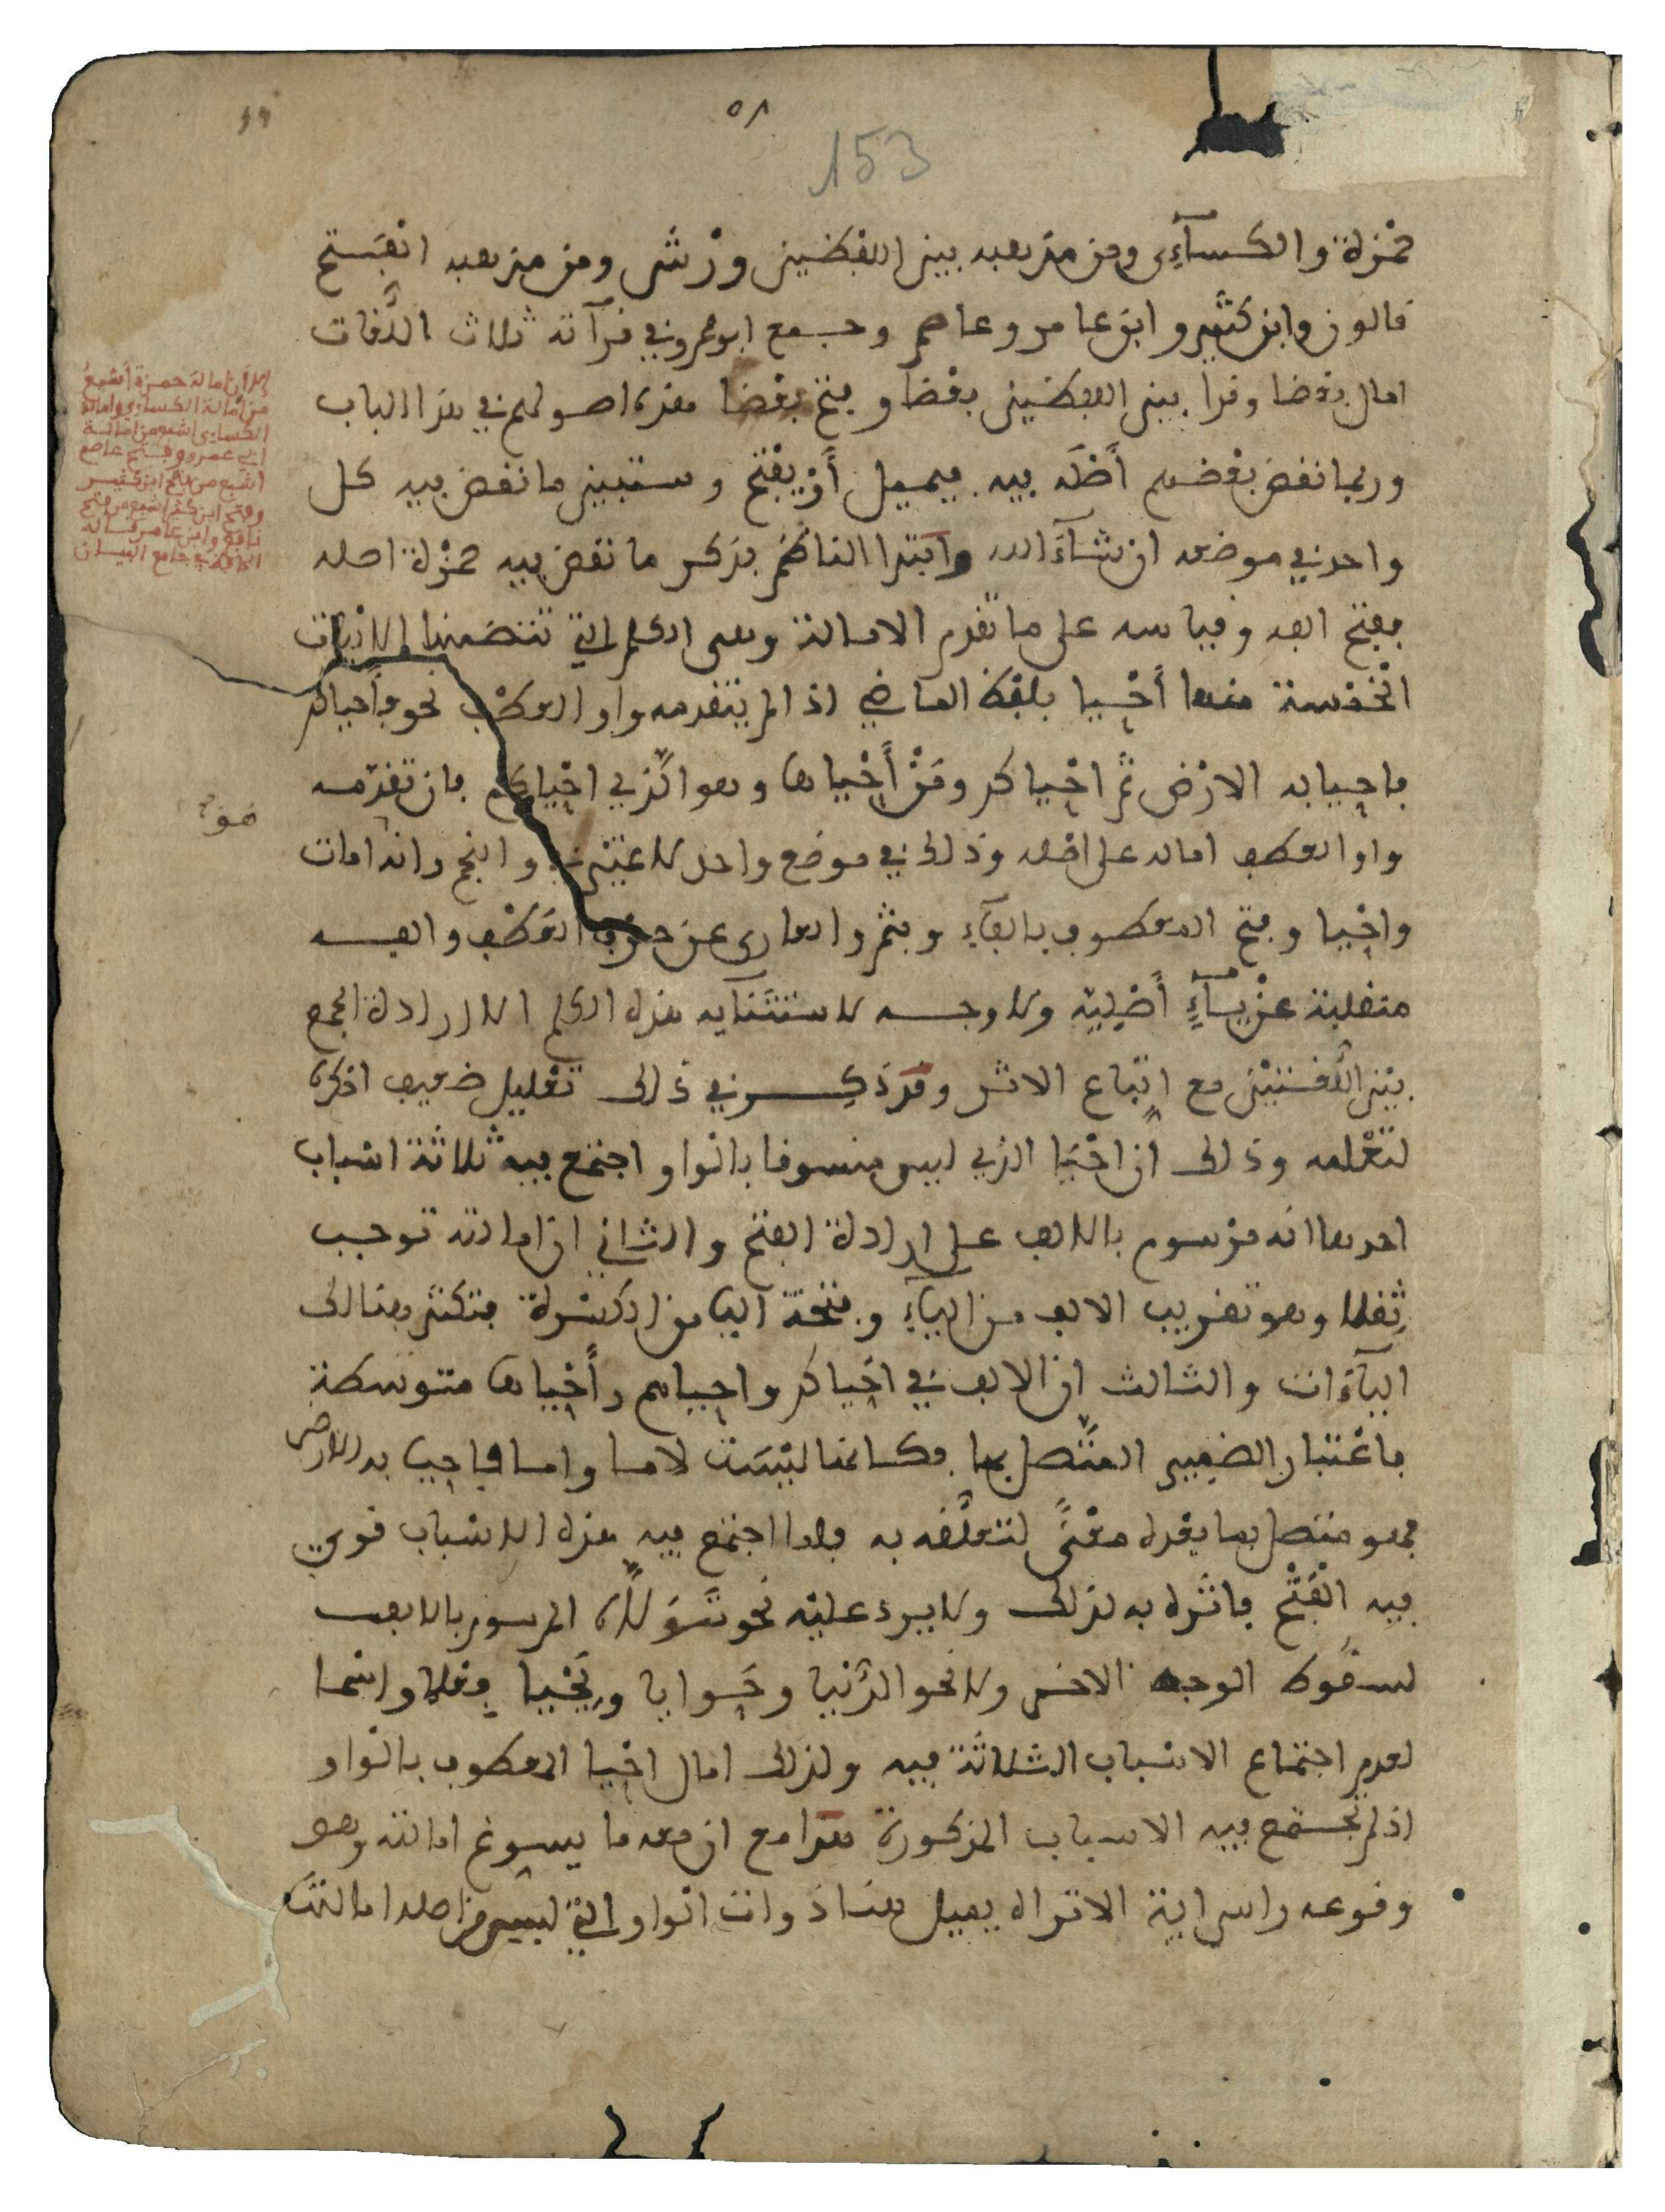 ٥٨
153
حمزة والكسآءي ومن مذهبه بين اللفظين ورش ومن مذهبه الفتح
قالون وابن كثير وابن عامر وعاصم وجمع ابو عمرو في قرآءته ثلاث اللغات
امال بعضا وقرا بين اللفظين بعضا وفتح بعضا فهذه اصولهم في هذا الباب
وربما نقض بعضهم أصله فيه فيميل أو يفتح وستبين ما نقض فيه كل
واحد في موضعه ان شآء الله وابتدا الناظم بذكر ما نقض فيه حمزة اصله
ففتح الفه وقياسه على ما تقدم الامالة وهى الكلم التي تتضمنها الابيات
الخمسة فمنها أحيا بلفظ الماضي اذا لم يتقدمه واو العطف نحو فأحياكم
فاحيا به الارض ثم احياكم ومن أحياها وهو الذي احياكم فان تقدمه
واو العطف اماله على اصله وذلك في موضع واحد لا غير في والنجم وانه امات
واحيا وفتح المعطوف بالفآء وبثم والعارى عن حرف العطف والفه
منقلبة عن يآء أصلية ولا وجه لاستثنآيه هذه الكلم الا ارادة الجمع
بين اللغتين مع اتباع الاثر وقد ذكر في ذلك تعليل ضعيف اذكره
لتعلمه وذلك ان احيا الذي ليس منسوقا بالواو اجتمع فيه ثلاثة اسباب
احدها انه مرسوم بالالف على ارادة الفتح والثاني ان امالته توجب
ثقلا وهو تقريب الالف من اليآء وفتحة اليا من الكسرة فتكثر هنالك
اليآءات والثالث ان الالف في احياكم واحياهم وأحياها متوسطة
باعتبار الضمير المتصل بها فكانها ليست لاما واما فاحيا به الارض
فهو متصل بما بعده معنى لتعلقه به فلما اجتمع فيه هذه الاسباب قوي
فيه الفتح فاثره به لذلك ولا يرد عليه نحو تولاه المرسوم بالالف
لسقوط الوجه الاخر ولا نحو الدنيا وحوايا ويحيا فعلا واسما
لعدم اجتماع الاسباب الثلاثة فيه ولذلك امال احيا المعطوف بالواو
اذ لم تجتمع فيه الاسباب المذكورة هذا مع ان معه ما يسوغ امالته وهو
وقوعه راس اية الا تراه يميل هنا ذوات الواو التي ليس من اصله امالته
الا أن امالة حمزة أشبع
من امالة الكساءي وامالة
الكساءي اشبع من امالة
ابي عمرو وفتح عاصم
اشبع من فتح ابن كثير
وفتح ابن كثير اشبع من فتح
نافع وابن عامر قاله
الحافظ في جامع البيان